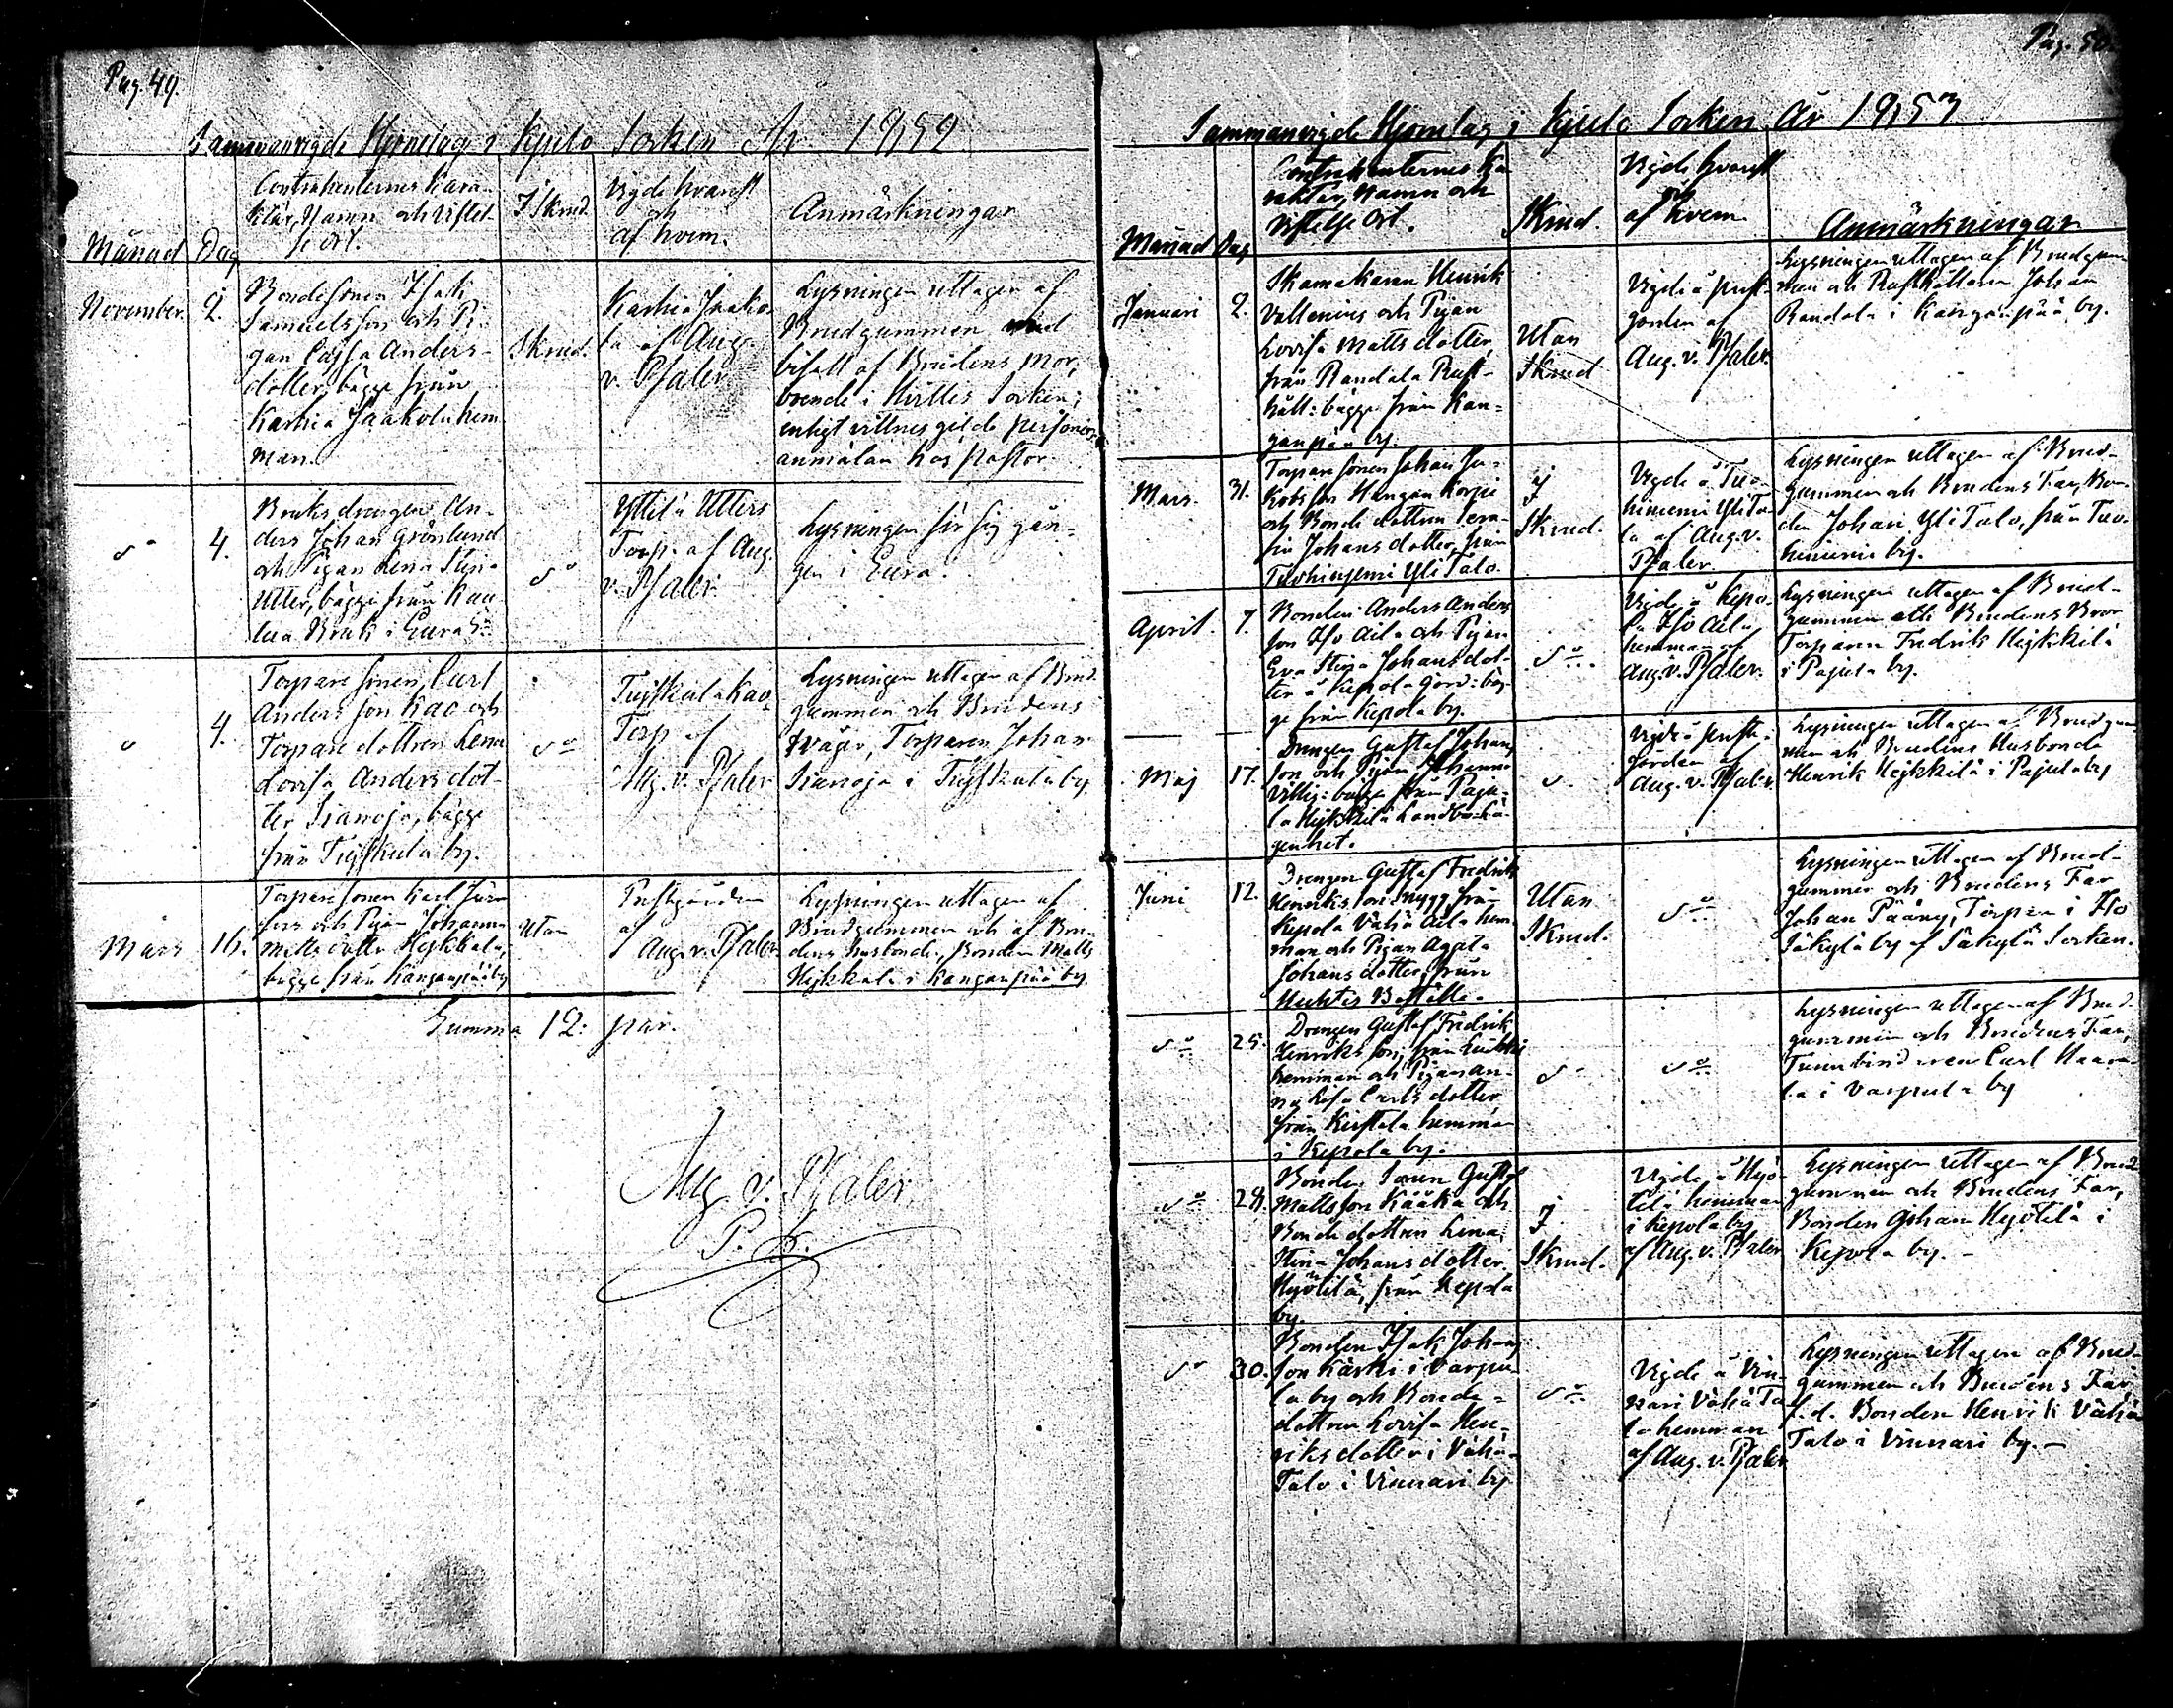 Pag. 49.
Sammanvigde Hjonelag i Kjulo Socken År 1852
Månad
Dag
Contrahenternes Kara-
kter, Namn och vistel-
se Ort.
I Skrud.
Vigde hvarest
och
af hvem.
Anmärkningar
November.
2.
Bondesonen Isak
Samuelsson och Pi-
gan Cajsa Anders-
dotter, bägge från
Karhia Jaakola hem
man.
I Skrud.
Karhia Jaako-
la af Aug.
v. Pfaler
Lysningen uttagen af
Brudgummen med
bifall af Brudens Mor,
boende i Hvittis Socken,
enligt vittnesgilde personers
anmälan hos Pastor.
do
4.
Bruksdrengen An-
ders Johan Grönlund
och Pigan Lena Stina
Utter, bägge från Kau-
tua Bruk i Eura Sn
do
Yttilä Utters
Torp. af Aug.
v. Pfaler.
Lysningen för sig gån-
gen i Eura.
do
4.
Torpare sonen Carl
Andersson Kao och
Torpare dottren Lena
Lovisa Anders dot-
ter Isanoja, bägge
från Tujskula by.
do
Tujskula Kao
Torp af
Aug. v. Pfaler
Lysningen uttagen af Brud-
gummen och Brudens
Svåger, Torparen Johan
Isanoja i Tujskula by
Mars
16.
Torpare sonen Karl
och Pigan Johanna
Matts dotter Hejkkala,
bägge från Kanganpää by
Utan
Prestgården
af
Aug. v. Pfaler
Lysningen uttagen af
Brudgummen och af Bru-
dens husbonde, Bonden Matts
Hejkkala i Kanganpää by.
Summa 12: par.
Aug. v. Pfaler
Pag. 50.
Sammanvigde Hjonelag i Kjulo Socken År 1853
Månad
Dag
Contrahenternes Ka-
rakter, Namn och
Vistelse Ort.
Skrud.
Vigde hvarest
och
af hvem.
Anmärkningar
Januari
2.
Skomakaren Henrik
Valtenius och Pigan
Lovisa Matts dotter,
från Randala Rust-
håll: bägge från Kan-
ganpää by.
Utan
Skrud
Vigde å prest-
gården af
Aug. v. Pfaler.
Lysningen uttagen af Brudgum-
men och Rusthållaren Johan
Randala i Kanganpää by.
Mars.
31.
Torpare sonen Johan Ja-
kobsson Hangan Korpi
och Bonde dottren Sera-
fia Johans dotter, från
Tuohiniemi Yli Talo.
I
Skrud.
Vigde å Tuo-
hiniemi Yli Ta-
lo af Aug. v.
Pfaler
Lysningen uttagen af Brud-
gummen och Brudens Far, Bon-
den Johan Yli Talo, från Tuo-
hiniemi by.
April.
7.
Bonden Anders Anders
son Iso Aila och Pigan
Eva Stina Johans dot-
ter å Kepola gård: bäg-
ge från Kepola by.
do
Vigde å Kepo-
la Iso Aila
hemman af
Aug. v. Pfaler.
Lysningen uttagen af Brud-
gummen och Brudens Bror
Torparen Fredrik Hejkkilä
i Pajula by.
Maj
17.
Drengen Gustaf Johans
son och Pigan Johanna
Villig: bägge från Paju-
la Hejkkilä Landbolä-
genhet.
do
Vigde å prest-
gården af
Aug. v. Pfaler
Lysningen uttagen af Brudgum-
men och Brudens Husbonde
Henrik Hejkkilä i Pajula by
Juni
12.
Drengen Gustaf Fredrik
Henriksson Mygg från
Kepola Vähä Aila hem-
man och Pigan Agata
Johans dotter, från
Utan
Skrud.
do
Lysningen uttagen af Brud-
gummen och Brudens Far
Johan Pääny, Torpare i Iso
Säkylä by af Säkylä Socken.
do
25.
Drengen Gustaf Fredrik
Henriksson, från
hemman och Pigan An-
na Lisa Carls dotter
från Kustala hemman
i Kepola by.
do
do
Lysningen uttagen af Brud-
gummen och Brudens Far,
Tunnbindaren Carl Haara-
la i Varpula by
do
28.
Bonde Sonen Gustaf
Mattsson Kääka och
Bonde dottren Lena
Stina Johans dotter
Hyötilä, från Kepola
by.
I
Skrud.
Vigde å Hyö-
tilä hemman
i Kepola by
af Aug. v. Pfaler
Lysningen uttagen af Brud-
gummen och Brudens Far,
Bonden Johan Hyötilä i
Kepola by.
do
30.
Bonden Isak Johans
son Käski i Varpu-
la by och Bonde-
dottren Lovisa Hen-
riks dotter i Vähä-
Talo i Vinnari by
do
Vigde å Vin-
nari Vähä Ta
lo hemman
af Aug. v. Pfaler
Lysningen uttagen af Brud-
gummen och Brudens Far,
f.d. Bonden Henrik Vähä
Talo i Vinnari by.